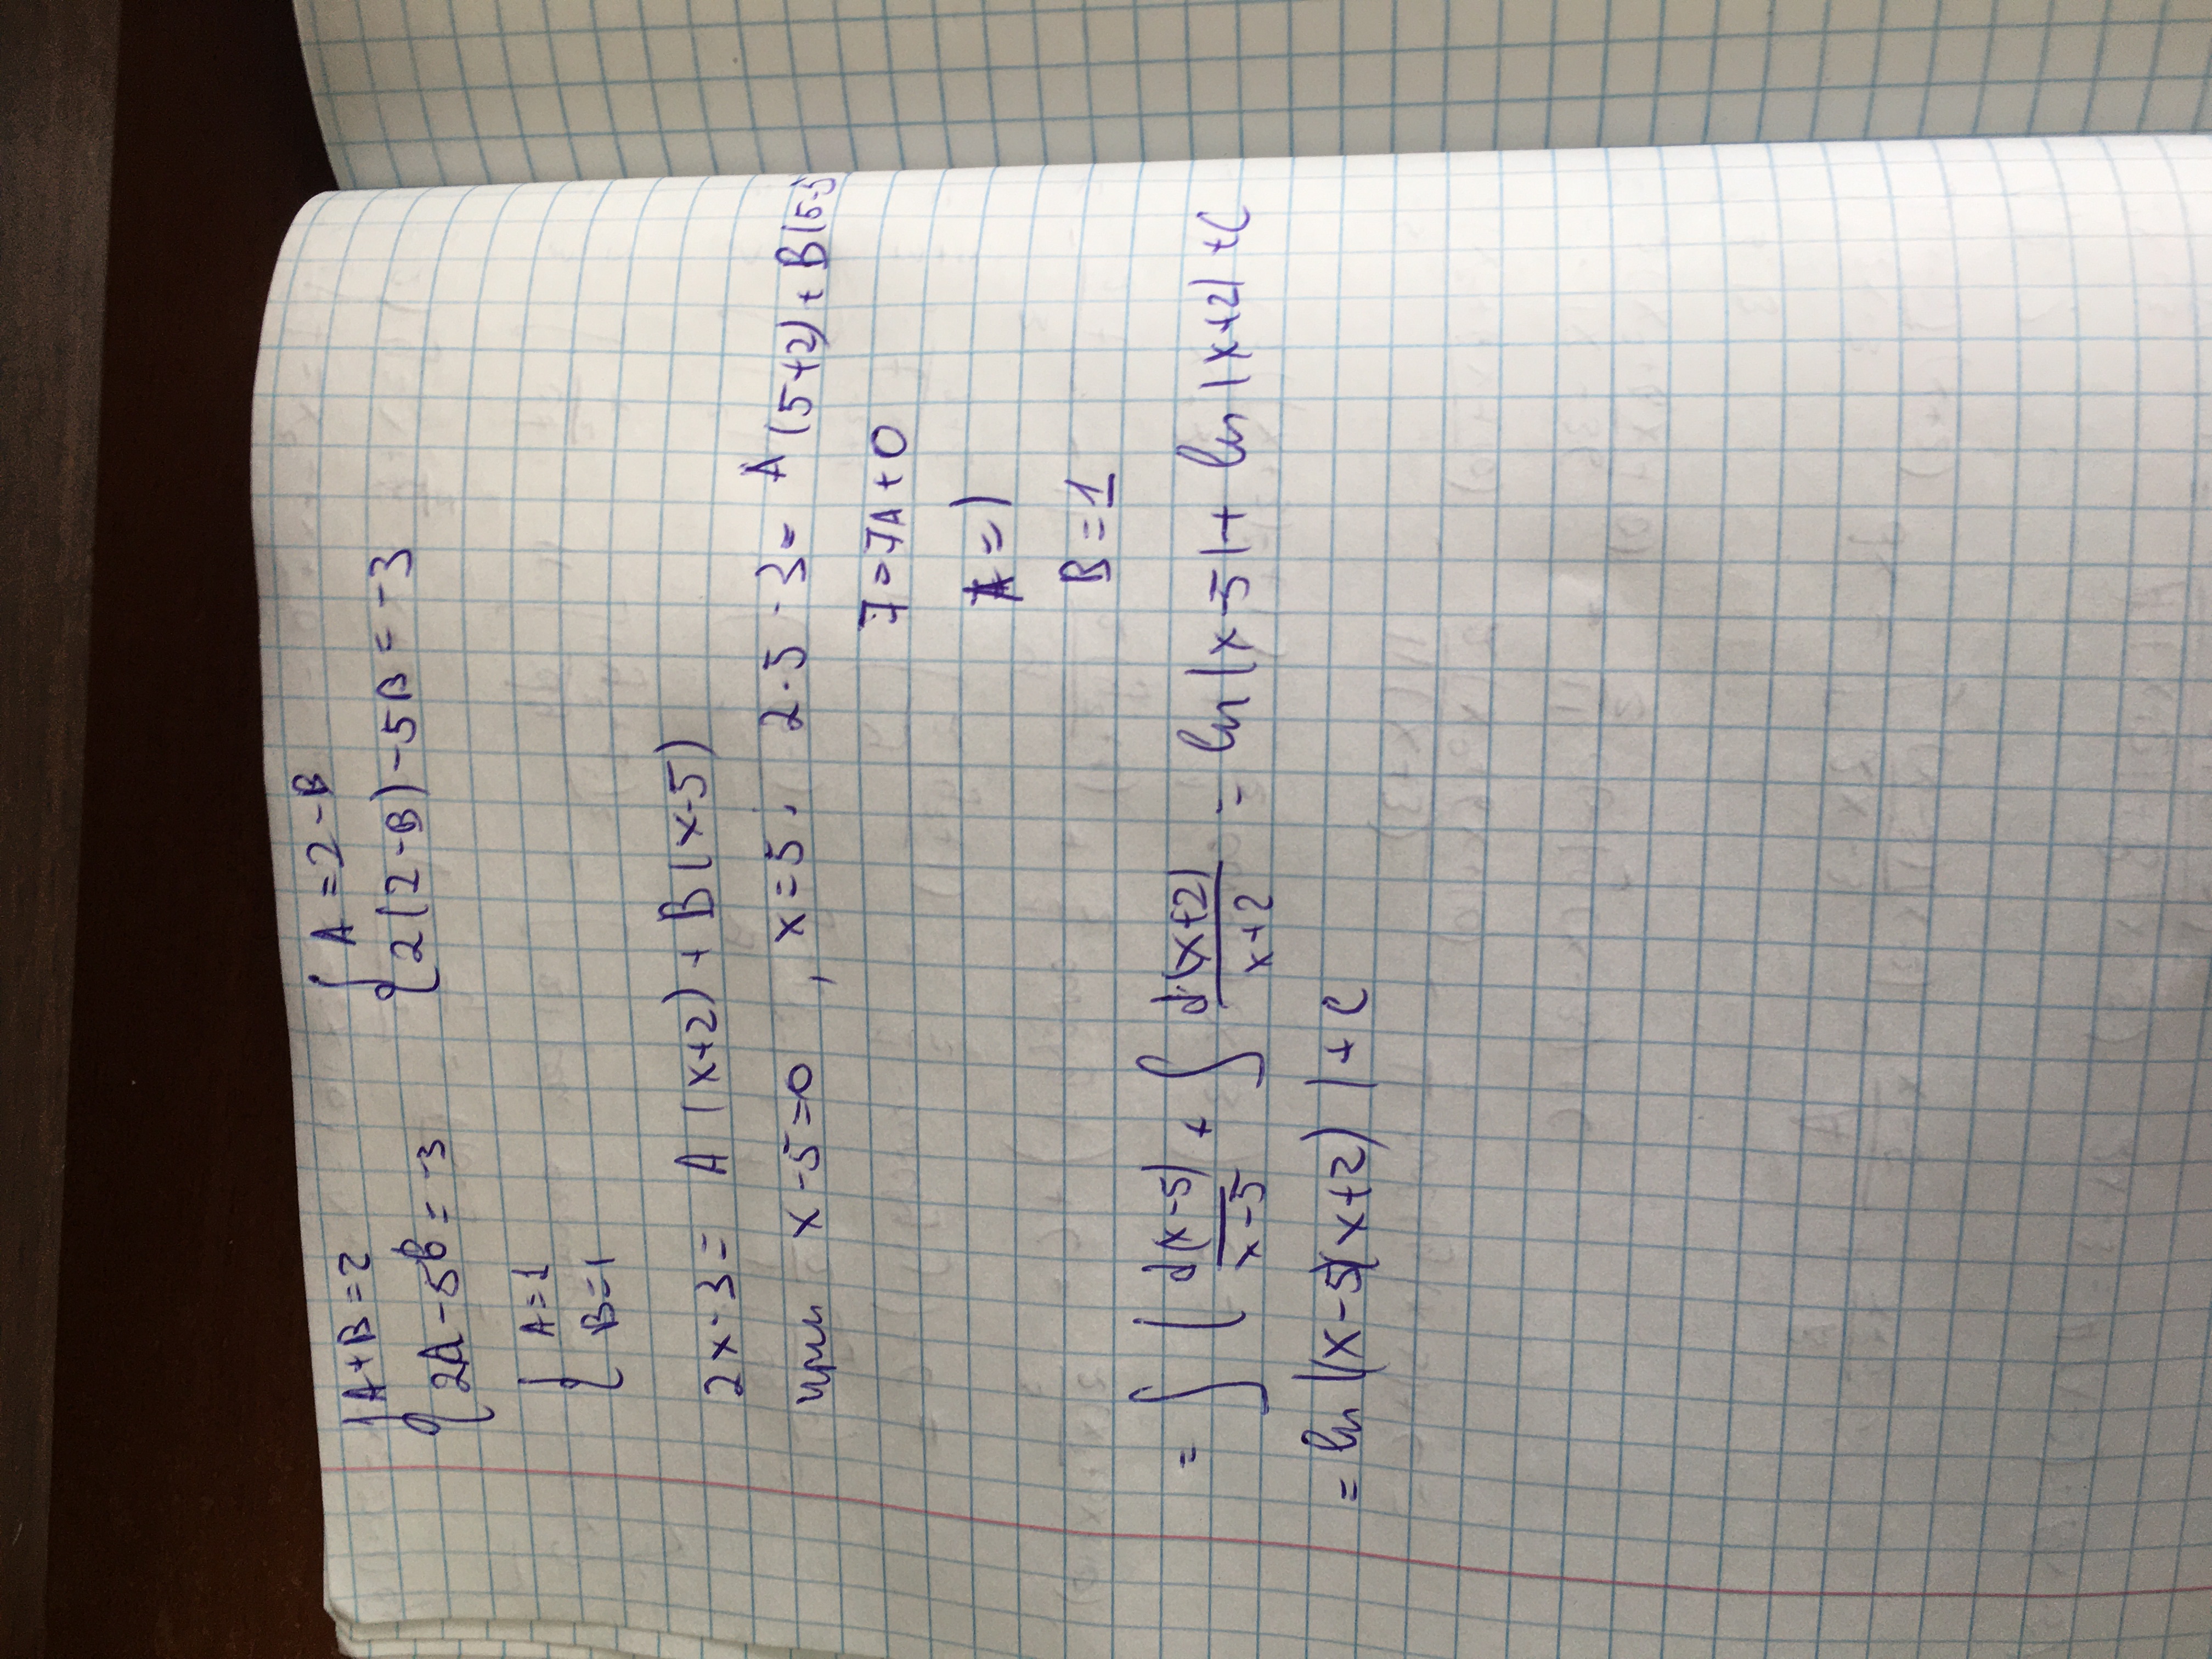 { A+B=2
2A-5B=-3
{ A=2-B
2(2-B)-5B=-3
{ A=1
B=1
2x-3= A(x+2)+B(x-5)
при x-5=0, x=5: 2·5-3= A(5+2)+B(5-5
7=7A+0
A=1
B=1
= ∫( d(x-5)/x-5 + ∫ d(x+2)/x+2 = ln|x-5|+ ln|x+2|+C
= ln|(x-5)(x+2)|+C